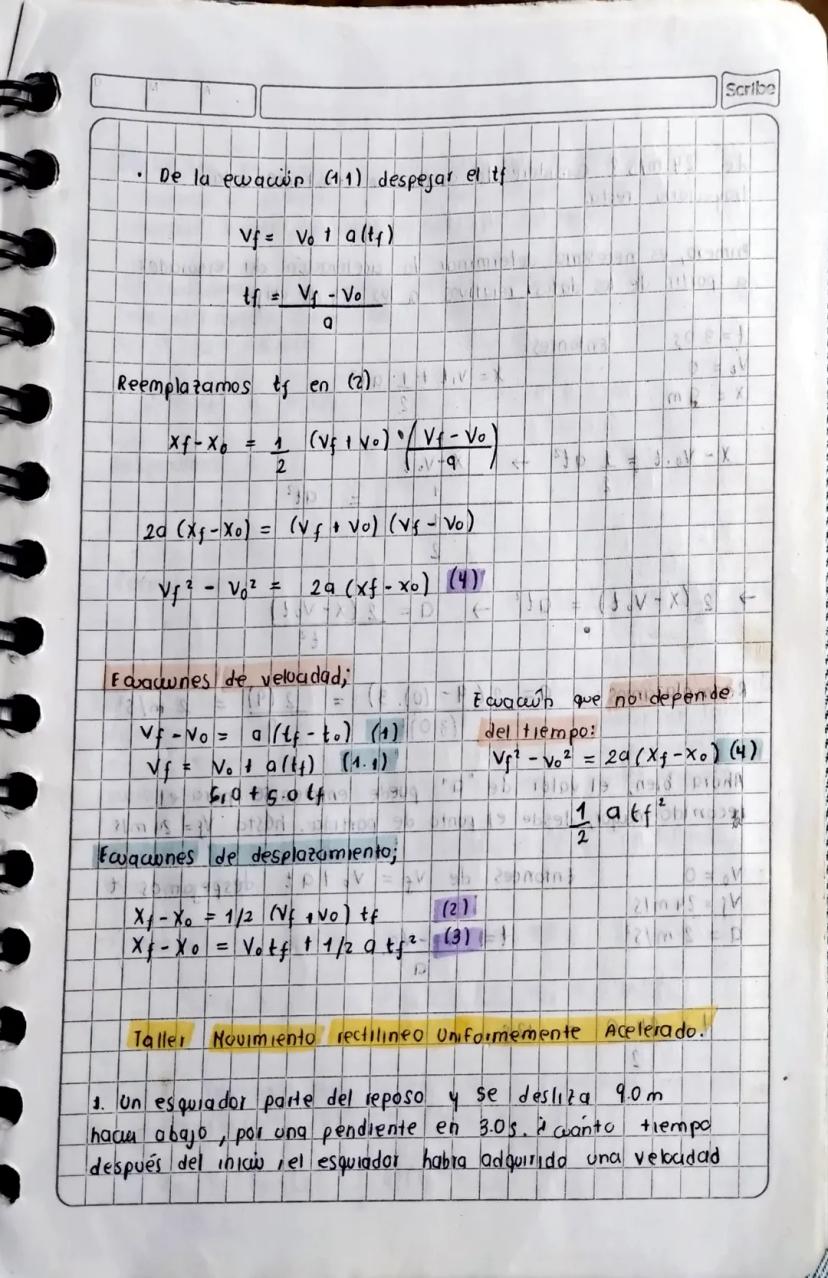 Scribe
D M A
· De la ecuación (1.1) despejar el tf
Vf = Vo + a(tf)
tf = Vf - Vo
a
Reemplazamos tf en (2)
Xf - Xo = 1/2 (Vf + Vo) · (Vf - Vo / a)
2a (Xf - Xo) = (Vf + Vo) (Vf - Vo)
Vf² - Vo² = 2a (Xf - Xo) (4)
Ecuaciones de velocidad;
Vf - Vo = a (tf - to) (1)
Vf = Vo + a(tf) (1.1)
5.0 + 5.0 tf
Ecuación que no depende
del tiempo:
Vf² - Vo² = 2a (Xf - Xo) (4)
1/2 a tf²
Ecuaciones de desplazamiento;
Xf - Xo = 1/2 (Vf + Vo) tf (2)
Xf - Xo = Vo tf + 1/2 a tf² (3)
Taller Movimiento rectilineo Uniformemente Acelerado.
1. Un esquiador parte del reposo y se desliza 9.0 m
hacia abajo, por una pendiente en 3.0s. ¿ cuánto tiempo
después del inicio, el esquiador habra adquirido una velocidad